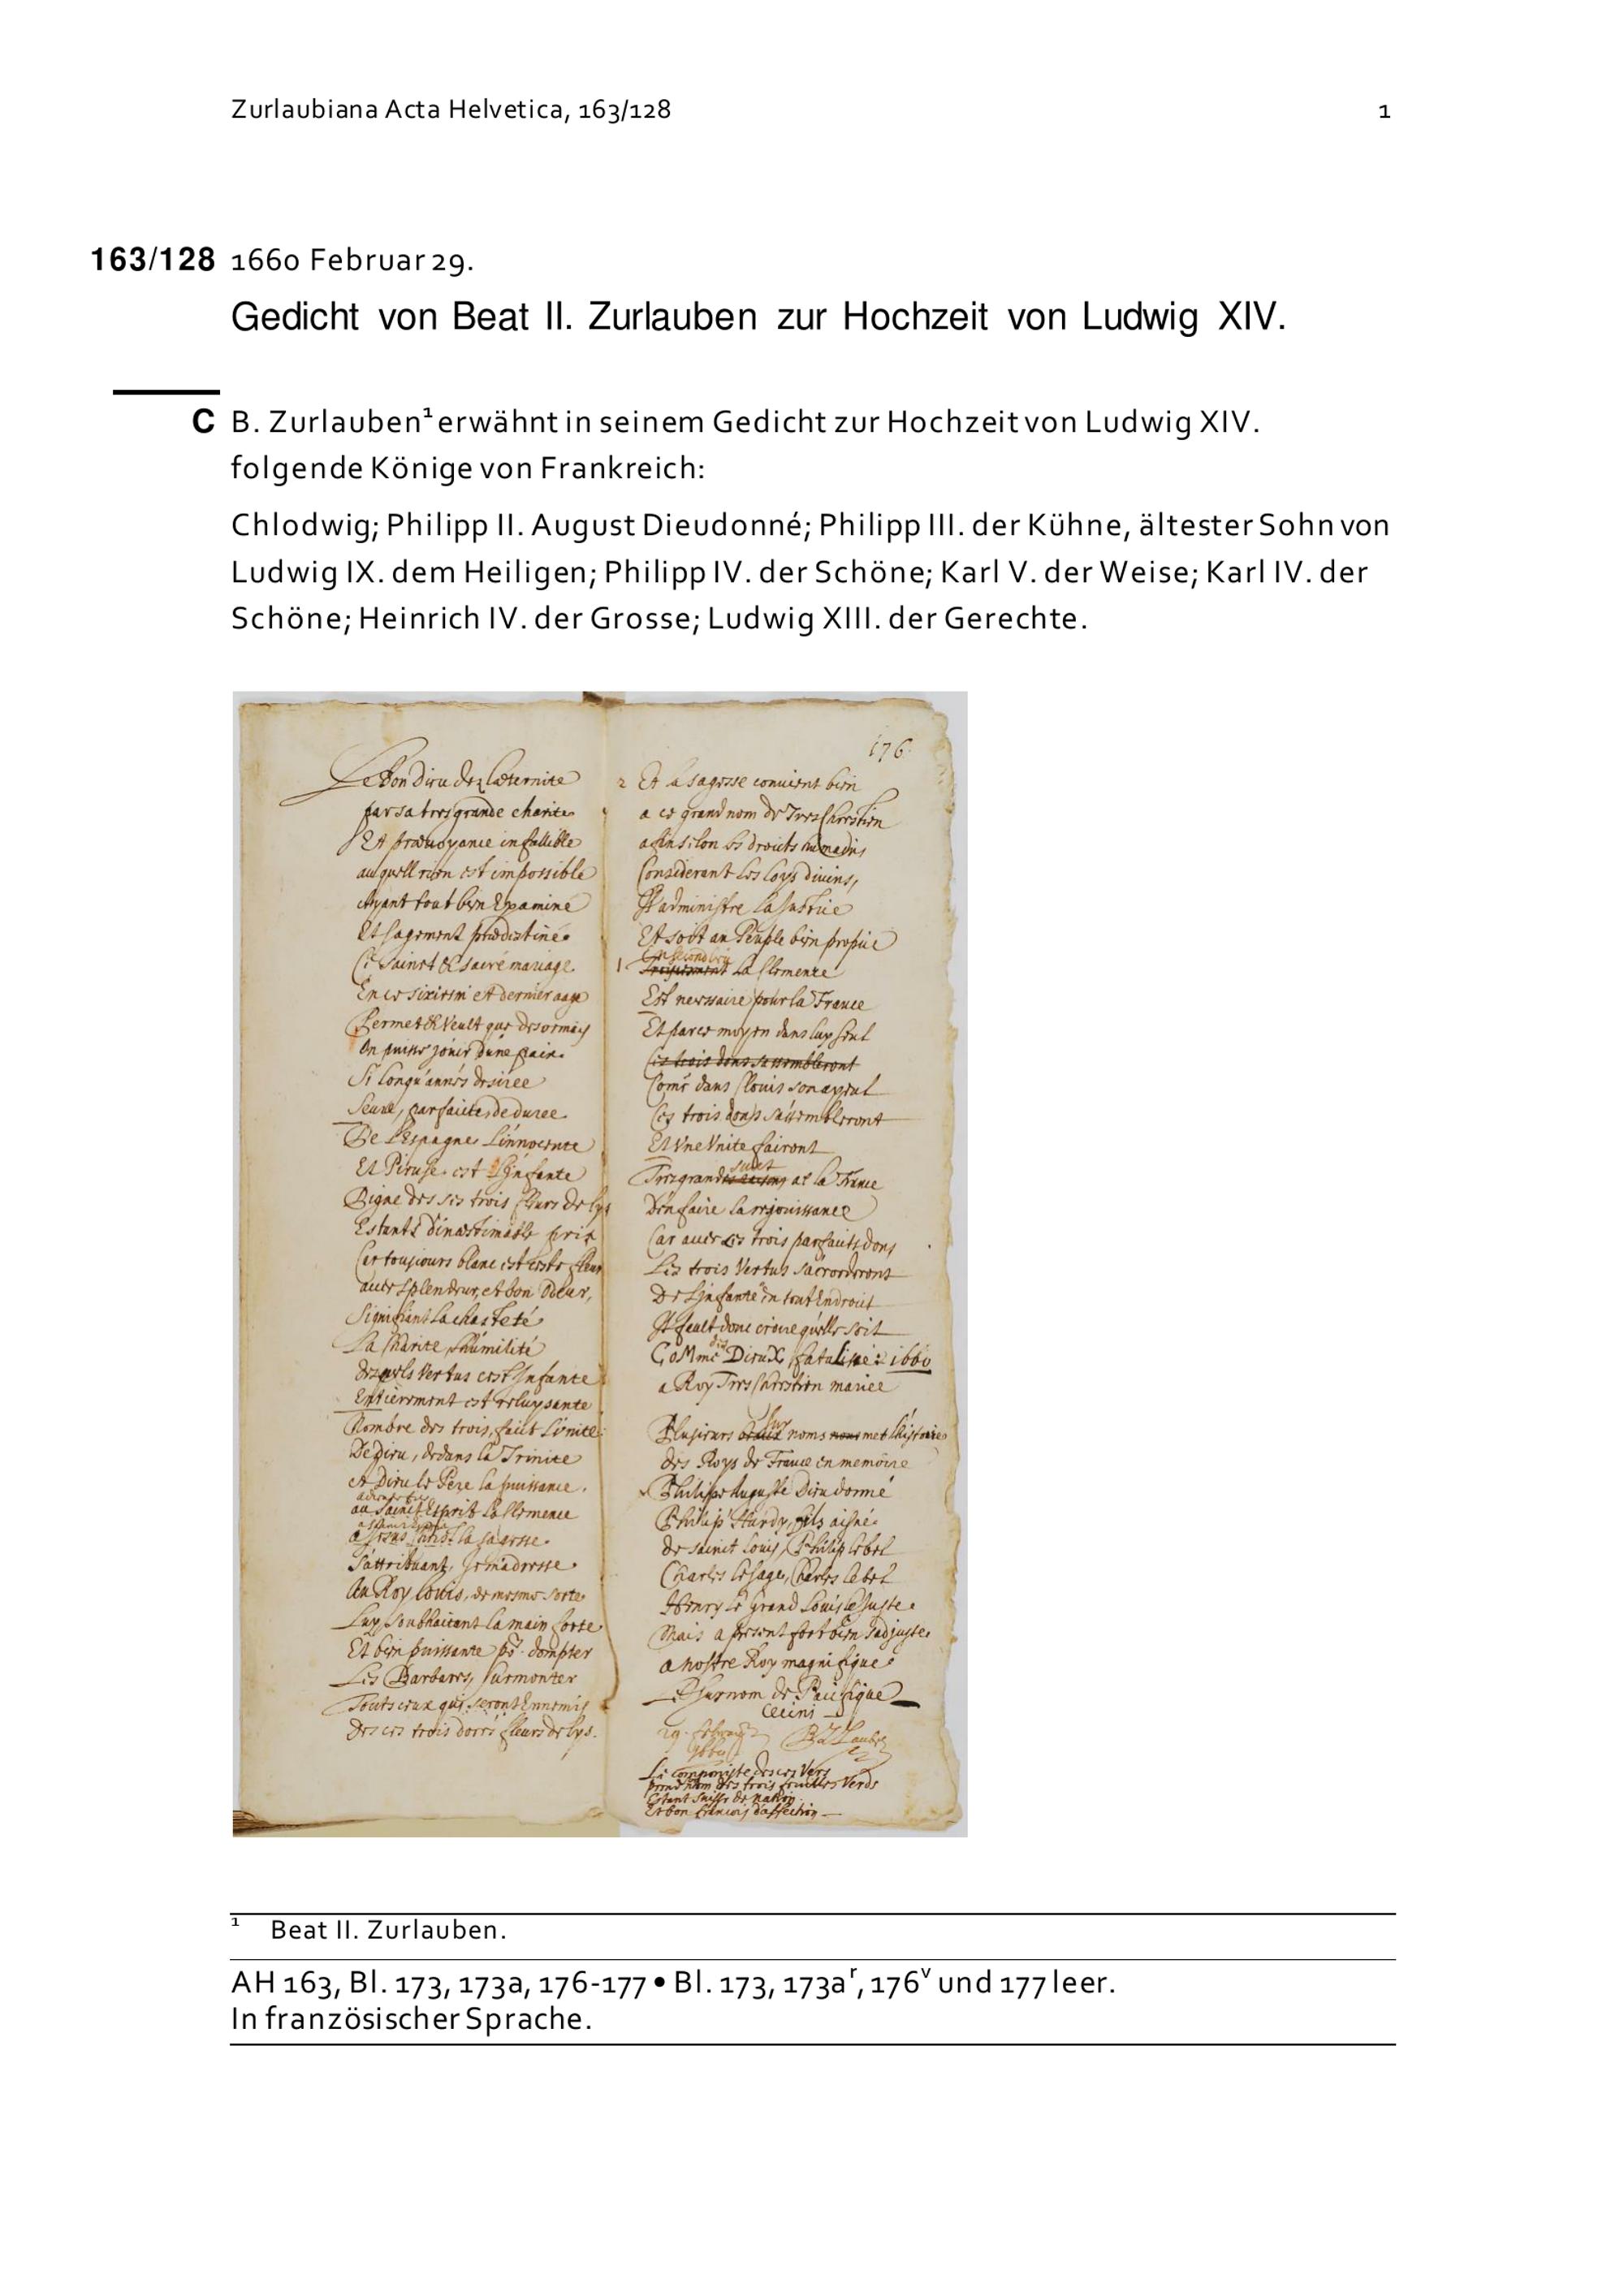 Zurlaubiana Acta Helvetica, 163/128 1
163/128 1660 Februar 29.
Gedicht von Beat II. Zurlauben zur Hochzeit von Ludwig XIV.
C B. Zurlauben¹ erwähnt in seinem Gedicht zur Hochzeit von Ludwig XIV.
folgende Könige von Frankreich:
Chlodwig; Philipp II. August Dieudonné; Philipp III. der Kühne, ältester Sohn von
Ludwig IX. dem Heiligen; Philipp IV. der Schöne; Karl V. der Weise; Karl IV. der
Schöne; Heinrich IV. der Grosse; Ludwig XIII. der Gerechte.
Le bon Dieu dez l'aeternite
par sa tres grande charite
Et praevoyance infallible
auquell rien est impossible
Ayant tout bien Examiné
Et sagement praedestiné
Ce sainct & sacré mariage
En ce sixiesm et dernier aage
Permet & Veult que desormais
On puisse jouir d'une paix
Si longu'années desirée
Seure, parfaite, de duree
De l'Espagne l'innocente
Et Pieuse est l'Infante
Digne des ses trois fleurs de lys
Estants d'inaestimable prix
Car tousjours blanc est ceste fleur
avec splendeur, et bon Odeur,
Signifiant la chasteté
La Charite l'humilité
desquels Vertus cest Infante
Entierement est reluysante
Nombre des trois, faict l'unite
De Dieu, dedans la Trinite
et Dieu le Pere la puissance
au sainct Esprit la Clemence
a Jesus Christ la sagesse
S'attribuant, Je m'adresse
Au Roy Louis, de mesme sorte
Luy Soubhaitant la main forte
Et bien puissante po.r dompter
Les Barbares, surmonter
Touts ceux qui seront Ennemis
Des ces trois dorés fleurs de lys.
176
2 Et la sagesse convient bien
a ce grand nom de Tres Chrestien
afin selon les droicts humains
Considerant les loys divins,
Il administre la Justice
Et soit au Peuple bien propice
En second lieu
1 la Clemence
Est necessaire pour la France
Et par ce moyen dans luy seul
Ces trois dons s'assembleront
Com̃e dans Clovis son ayeul
Ces trois dons s'assembleront
Et Vne Vnite fairont
Tres grand suiet at la France
D'en faire la resjouissance
Car avec ces trois parfaits dons
Les trois Vertus s'accorderont
De l'Infante en tout Endroict
Il fault donc croire qu'elle soit
CoMme DieuX 1660
a Roy Tres Chrestien mariée
Plusieurs sur noms met l'histoire
des Roys de France en memoire
Philipe Auguste Dieu donné
Philip' Hardy, fils aisné
de sainct Louis, Philip le bel
Charles le sage, Charles le bel
Henry le Grand Louis le Juste
Mais a present fort bien s'adjuste
a nostre Roy magnifique
Le surnom de Pacifique
Cecini
29. Februarij
1660 BZLauben
Le componiste des ces Vers
prend nom des trois feuilles Verds
Estant Suisse de nation
Et bon françois d'affection
1 Beat II. Zurlauben.
AH 163, Bl. 173, 173a, 176-177 • Bl. 173, 173aʳ, 176ᵛ und 177 leer.
In französischer Sprache.